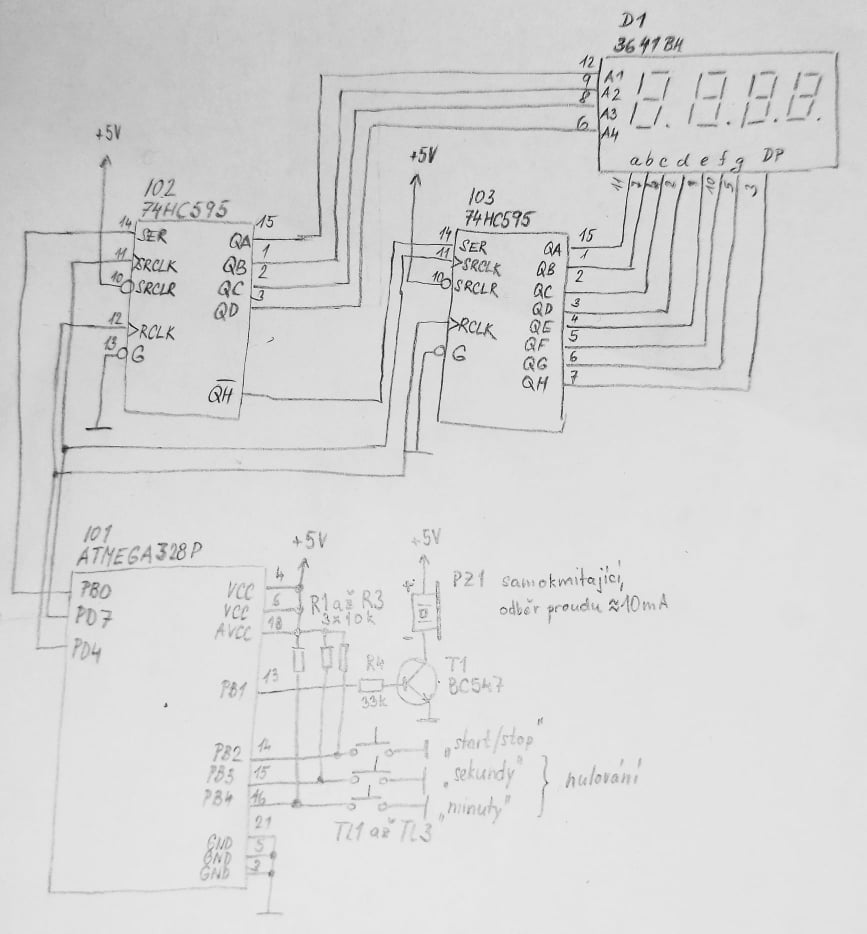 D1
3641BH
12
9
8
6
A1
A2
A3
A4
a b c d e f g DP
11
10
5
3
+5V
IO2
74HC595
14
SER
11
SRCLK
10
SRCLR
12
RCLK
13
G
15
QA
1
QB
2
QC
3
QD
QH
+5V
IO3
74HC595
14
SER
11
SRCLK
10
SRCLR
RCLK
G
15
QA
1
QB
2
QC
3
QD
4
QE
5
QF
6
QG
7
QH
IO1
ATMEGA328P
PB0
PD7
PD4
4
VCC
6
VCC
18
AVCC
13
PB1
14
PB2
15
PB3
16
PB4
21
GND
5
GND
3
GND
+5V
R1 až R3
3x10k
R4
33k
+5V
PZ1 samokmitající,
odběr proudu ≈10mA
T1
BC547
„start/stop"
„sekundy"
„minuty"
} nulování
TL1 až TL3